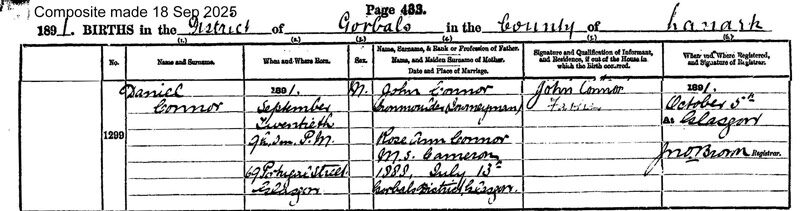 Composite made 18 Sep 2025
Page 433.
1891. BIRTHS in the District of Gorbals in the County of Lanark
(1.) (2.) (3.) (4.) (5.) (6.)
No. Name and Surname. When and Where Born. Sex. Name, Surname, & Rank or Profession of Father. Name, and Maiden Surname of Mother. Date and Place of Marriage. Signature and Qualification of Informant, and Residence, if out of the House in which the Birth occurred. When and Where Registered, and Signature of Registrar.
1299
Daniel
Connor
1891.
September
Twentieth
9h. 0m. P.M.
69 Portugal Street
Glasgow
M.
John Connor
Ironmoulder (Journeyman)
Rose Ann Connor
M.S. Cameron
1888, July 13th
Gorbals District, Glasgow
John Connor
Father
1891.
October 5th
At Glasgow
Jno. Brown Registrar.